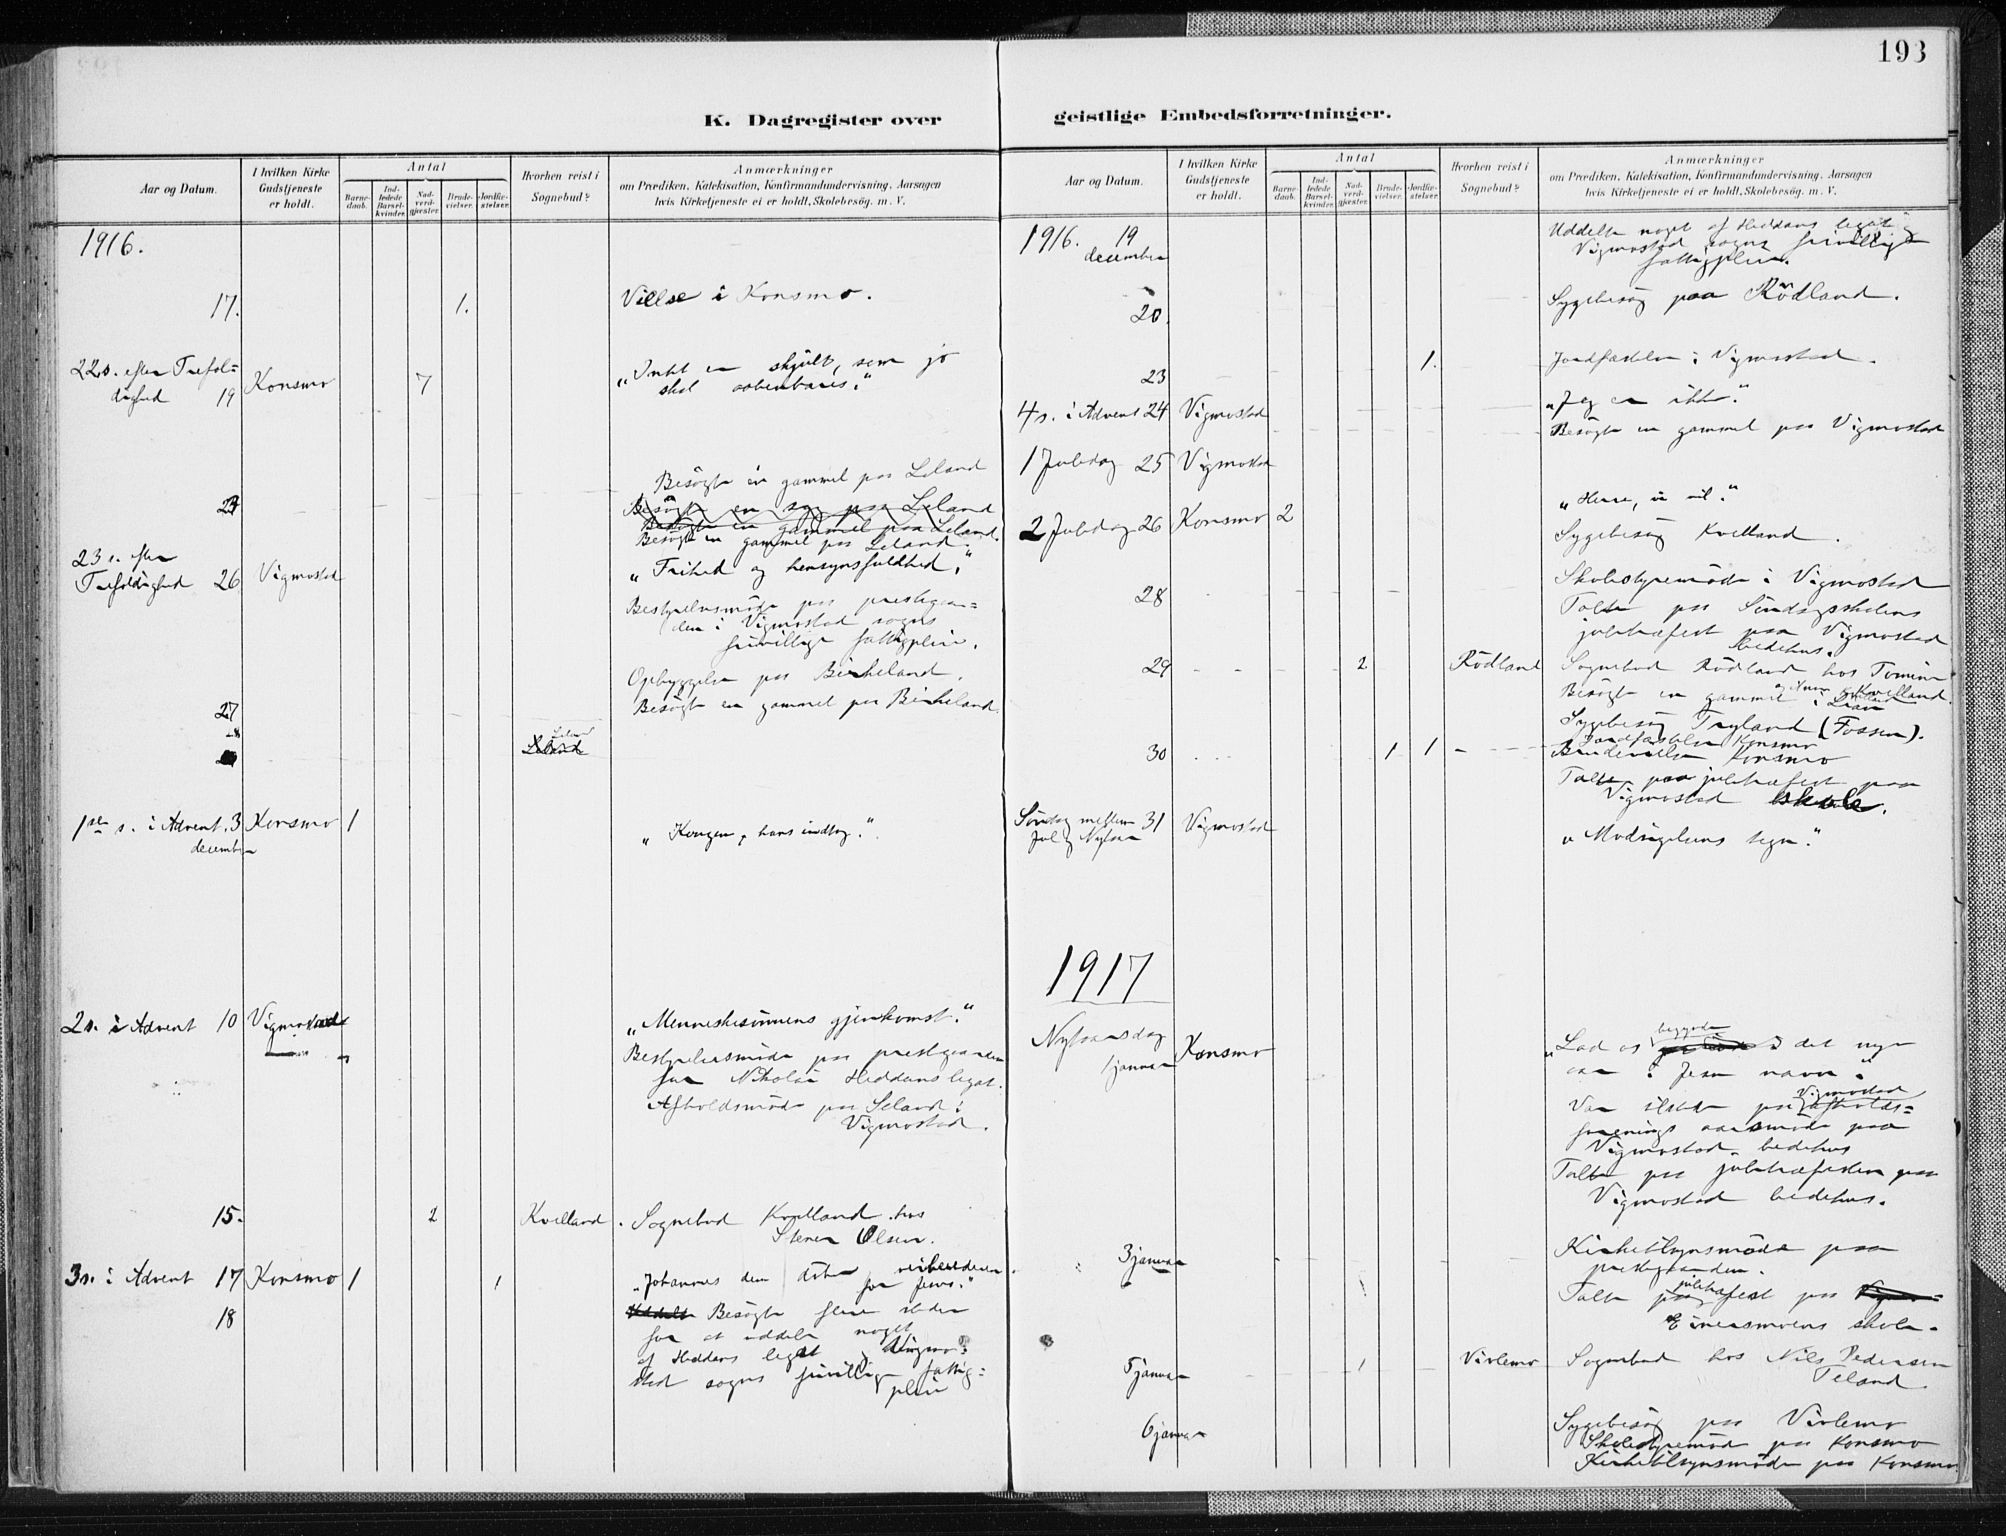 193
K. Dagregister over
Aar og Datum.
I hvilken Kirke Gudstjeneste er holdt.
Antal
Barnedaab.
Indledede Barselkvinder.
Nadverdgjæster.
Brudevielser.
Jordfæstelser.
Hvorhen reist i Sognebud?
Anmærkninger
om Prædiken, Katekisation, Konfirmandundervisning, Aarsagen
hvis Kirketjeneste ei er holdt, Skolebesøg. m. V.
1916.
17. 1. Vielse i Konsmo.
22 s. efter Trefol=
dighed 19 Konsmo 7 "Intet er skjult, som jo
skal aabenbares."
Besögte en gammel paa Leland
Besögte en syg paa Leland
Besögte en gammel paa Leland.
Besögte en gammel paa Leland.
23 s. efter
Trefoldighed 26 Vigmostad "Frihed og hensynsfuldhed."
Bestyrelsesmöde paa prestegaar=
den i Vigmostad sogns
frivillige fattigpleie.
Opbyggelse paa Birkeland.
27 Besögte en gammel paa Birkeland.
Leland
1ste s. i Advent 3 Konsmo 1 "Kongen, hans indtog."
december
2 s. i Advent 10 Vigmostad "Menneskesönnens gjenkomst."
Bestyrelsesmöde paa prestegaarden
for Nikolai Heddans legat.
Afholdsmöde paa Leland i
Vigmostad.
15. 2 Kvelland. Sognebud Kvelland hos
Stener Olsen.
3 s. i Advent 17 Konsmo 1 1 "Johannes den döber
for Jesus."
18 Uddelte Besögte flere steder
for at uddele noget
af Heddans legat Vigmo=
stad sogns frivillige fattig=
pleie
geistlige Embedsforretninger.
Aar og Datum.
I hvilken Kirke Gudstjeneste er holdt.
Antal
Barnedaab.
Indledede Barselkvinder.
Nadverdgjæster.
Brudevielser.
Jordfæstelser.
Hvorhen reist i Sognebud?
Anmærkninger
om Prædiken, Katekisation, Konfirmandundervisning, Aarsagen
hvis Kirketjeneste ei er holdt, Skolebesøg. m. V.
1916. 19 december Uddelte noget af Heddans legat og
Vigmostad sogns frivillige
fattigpleie.
20. Sygebesög paa Rödland.
23 1. Jordfæstelse i Vigmostad.
4 s. i Advent 24 Vigmostad "Jeg er ikke."
Besögte en gammel paa Vigmostad
1 Juledag 25 Vigmostad
"Herre, vi vil."
2 Juledag 26 Konsmo 2 Sygebesög Kvelland.
28 Skolestyremöde i Vigmostad
Talte paa Söndagsskolens
juletræfest paa Vigmostad
bedehus.
29 2 Rödland Sognebud Rödland hos
Besögte en gammel i
Sygebesög Tryland (Fossen).
Jordfæstelse Konsmo
30 1 1 Brudevielse Konsmo
Talte paa juletræfest paa
Vigmostad skole.
Söndag mellem 31 Vigmostad "Modsigelsens tegn."
Jul og Nytaar
1917
Nytaarsdag
1 januar Konsmo "Lad os begynde det nye
aar i Jesu navn."
Var tilstede paa Vigmostad afholds=
forenings aarsmöde paa
Vigmostad bedehus
Talte paa juletræfesten paa
Vigmostad bedehus.
3 januar Kirketilsynsmöde paa
prestegaarden.
Talte paa juletræfest paa
Einersmoens skole.
5 januar 1 Vivlemo Sognebud hos Nils Pedersen
Teland
6 januar Sygebesög paa Vivlemo
Skolestyremöde paa Konsmo
Kirketilsynsmöde paa Konsmo.